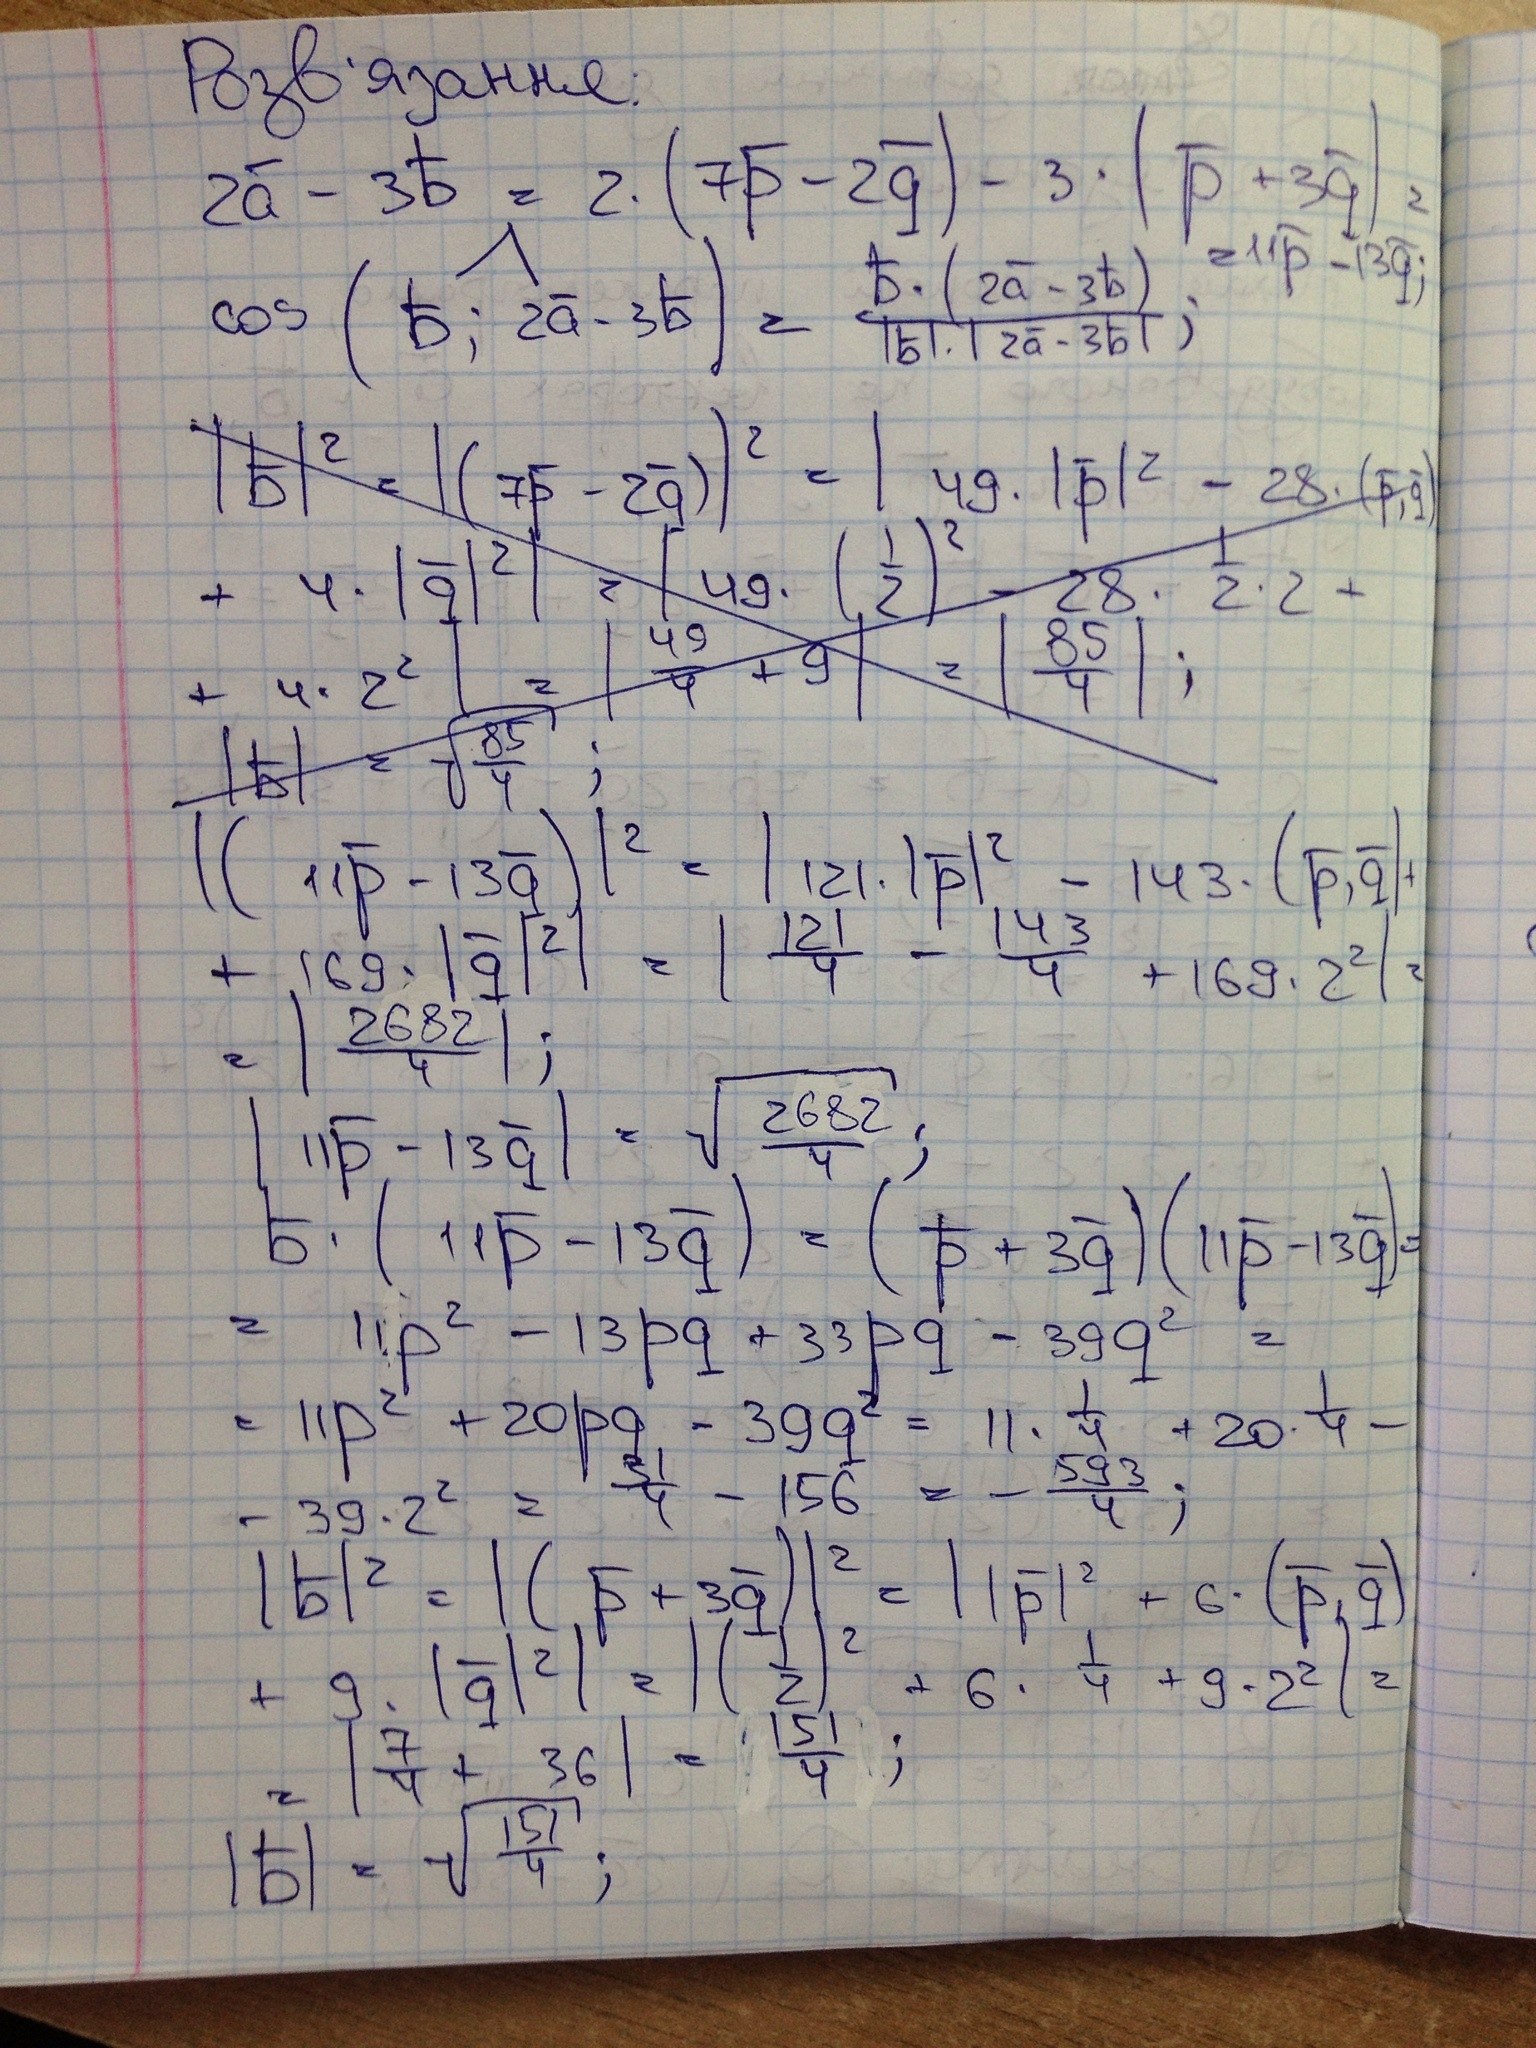 Розв'язання:
2a̅ - 3b̅ = 2·(7p̅ - 2q̅) - 3·(p̅ + 3q̅) =
= 11p̅ - 13q̅;
cos(b̅; 2a̅ - 3b̅) = b̅·(2a̅ - 3b̅) / |b̅|·|2a̅ - 3b̅| ;
|b̅|² = |(7p̅ - 2q̅)|² = |49·|p̅|² - 28·(p̅,q̅)
+ 4·|q̅|²| = |49·(1/2)² - 28·1/2·2 +
+ 4·2²| = |49/4 + 9| = |85/4|;
|b̅| = √(85/4) ;
|(11p̅ - 13q̅)|² = |121·|p̅|² - 143·(p̅,q̅)+
+ 169·|q̅|²| = |121/4 - 143/4 + 169·2²| =
= |2682/4|;
|11p̅ - 13q̅| = √(2682/4) ;
b̅·(11p̅ - 13q̅) = (p̅ + 3q̅)(11p̅ - 13q̅) =
= 11p² - 13pq + 33pq - 39q² =
= 11p² + 20pq - 39q² = 11·1/4 + 20·1/4 -
- 39·2² = 31/4 - 156 = - 593/4 ;
|b̅|² = |(p̅ + 3q̅)|² = ||p̅|² + 6·(p̅,q̅)
+ 9·|q̅|²| = |(1/2)² + 6·1/4 + 9·2²| =
= |7/4 + 36| = 151/4 ;
|b̅| = √(151/4) ;